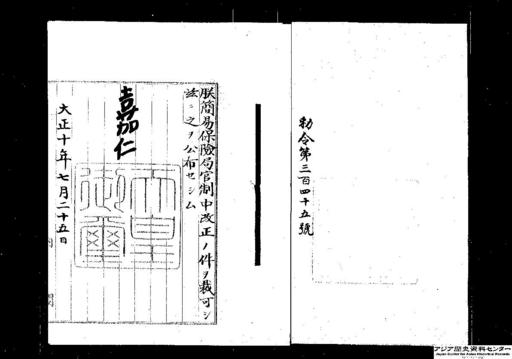 勅令第三百四十五號
朕簡易保險局官制中改正ノ件ヲ裁可シ
玆ニ之ヲ公布セシム
嘉仁
天皇御璽
大正十年七月二十五日
アジア歴史資料センター
Japan Center for Asian Historical Records